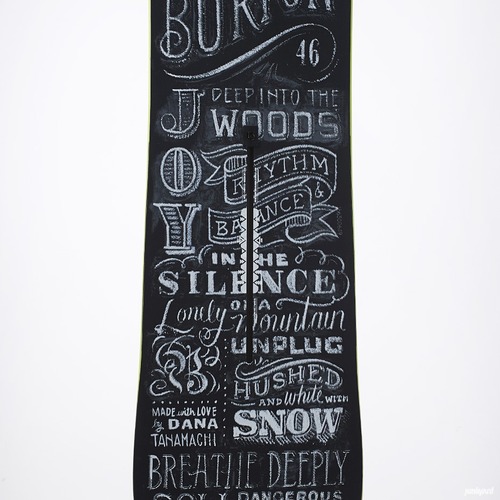 BURTON
46
JOY
DEEP INTO THE
WOODS
RHYTHM
& BALANCE
IN THE
SILENCE
OF A
Lonely Mountain
UNPLUG
HUSHED
AND white WITH
SNOW
MADE with LOVE
by DANA
TANAMACHI
BREATHE DEEPLY
DANGEROUS